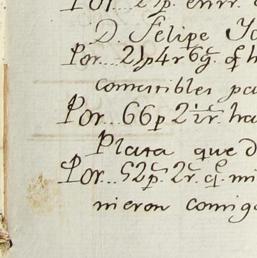 Por... 21p. enrr.
D. Felipe Yo
Por... 21p 4r 6g. q. h
comestibles pa
Por... 66p 2 rr. ha
Plata que d
Por... 52p. 2r. q. mi
nieron comigo